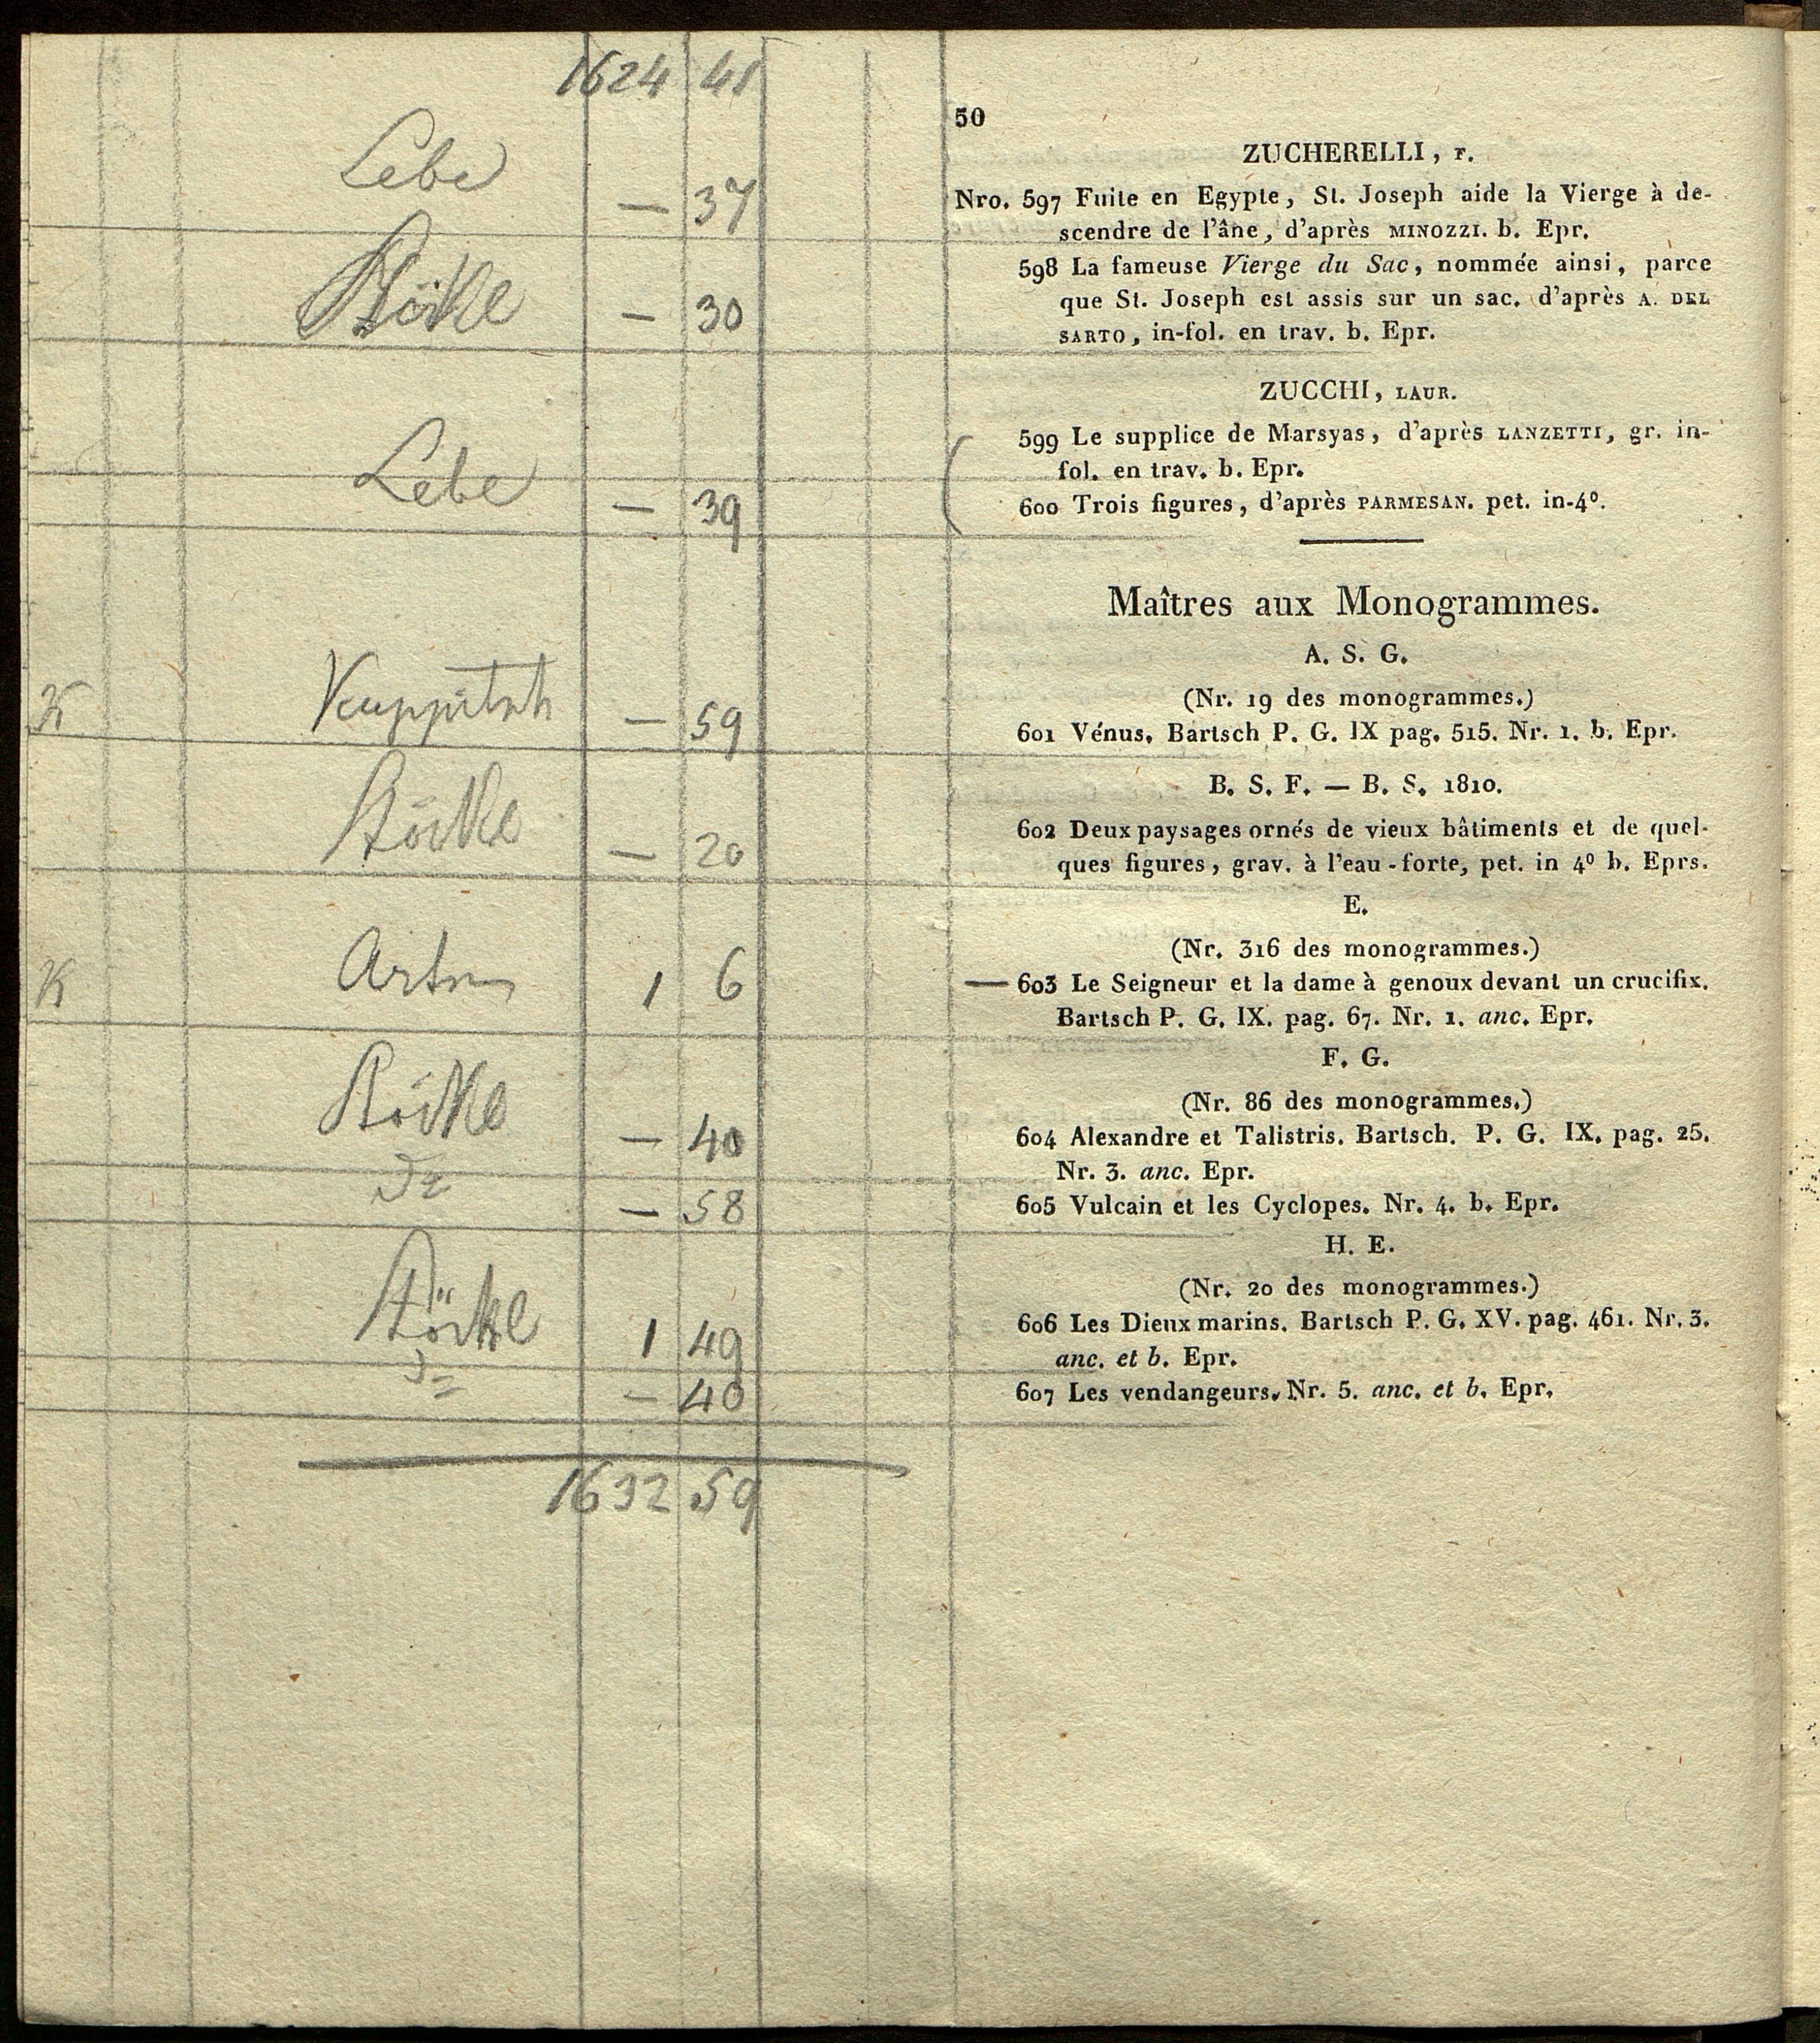 1624 41
50
ZUCHERELLI, F.
Lebe — 37
Nro. 597 Fuite en Egypte, St. Joseph aide la Vierge à de-
scendre de l'âne, d'après MINOZZI. b. Epr.
Stöckl — 30
598 La fameuse Vierge du Sac, nommée ainsi, parce
que St. Joseph est assis sur un sac. d'après A. DEL
SARTO, in-fol. en trav. b. Epr.
ZUCCHI, LAUR.
Lebe — 39
599 Le supplice de Marsyas, d'après LANZETTI, gr. in-
fol. en trav. b. Epr.
600 Trois figures, d'après PARMESAN. pet. in-4°.
Maîtres aux Monogrammes.
A. S. G.
(Nr. 19 des monogrammes.)
K Kuppitsch — 59
601 Vénus. Bartsch P. G. IX pag. 515. Nr. 1. b. Epr.
B. S. F. — B. S. 1810.
Stöckl — 20
602 Deux paysages ornés de vieux bâtiments et de quel-
ques figures, grav. à l'eau-forte, pet. in 4° b. Eprs.
E.
(Nr. 316 des monogrammes.)
K 1 6
— 603 Le Seigneur et la dame à genoux devant un crucifix.
Bartsch P. G. IX. pag. 67. Nr. 1. anc. Epr.
F. G.
(Nr. 86 des monogrammes.)
Stöckl — 40
604 Alexandre et Talistris. Bartsch. P. G. IX. pag. 25.
Nr. 3. anc. Epr.
— 58
605 Vulcain et les Cyclopes. Nr. 4. b. Epr.
H. E.
(Nr. 20 des monogrammes.)
Stöckl 1 49
606 Les Dieux marins. Bartsch P. G. XV. pag. 461. Nr. 3.
anc. et b. Epr.
— 40
607 Les vendangeurs. Nr. 5. anc. et b. Epr.
1632 59